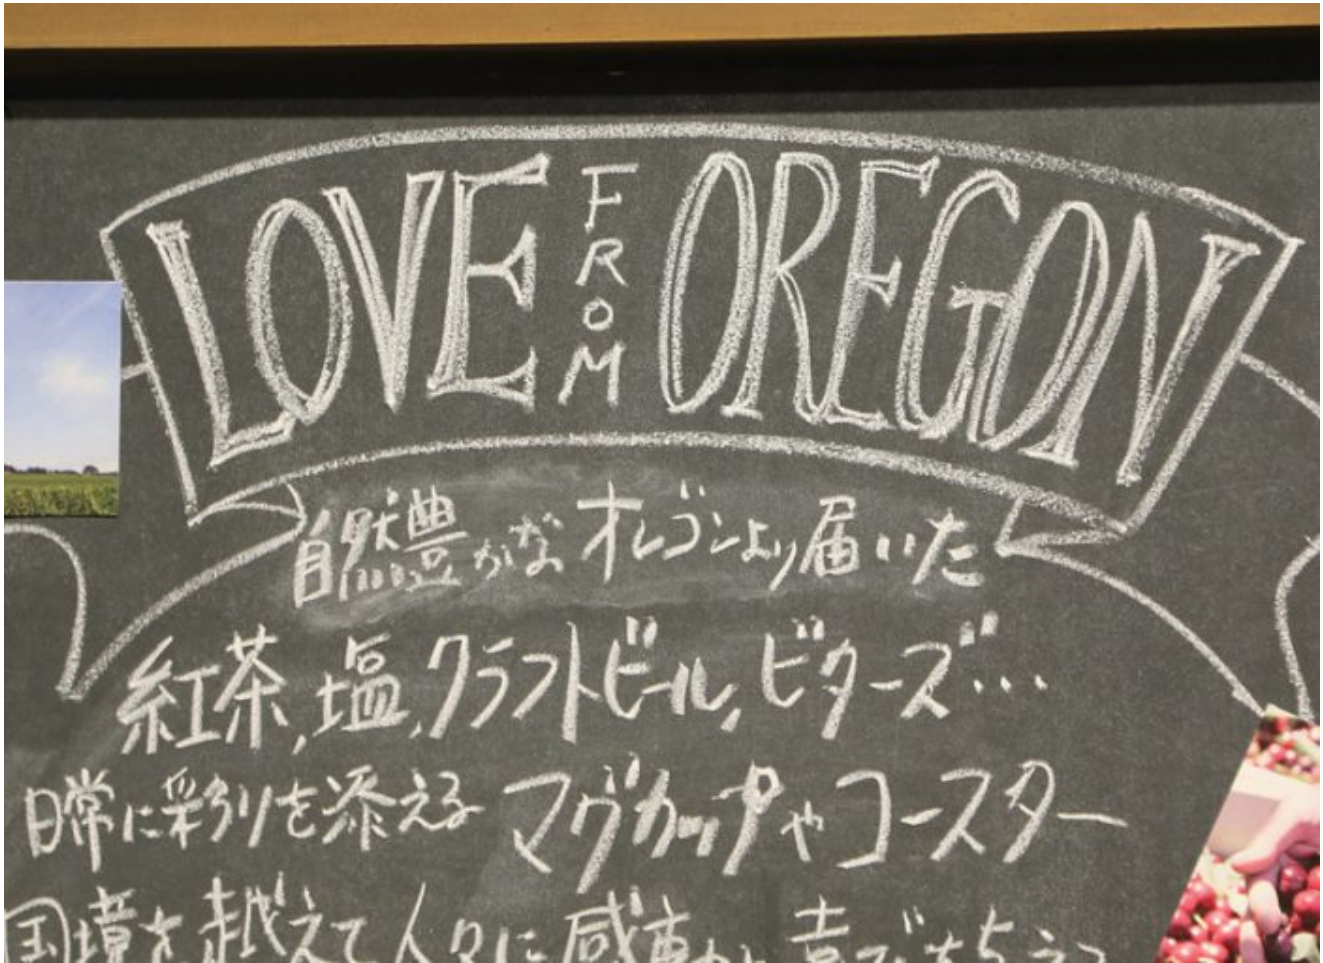 LOVE FROM OREGON
自然豊かなオレゴンより届いた
紅茶、塩、クラフトビール、ビターズ…
日常に彩りを添えるマグカップやコースター
国境を越えて人々に感動と喜びを